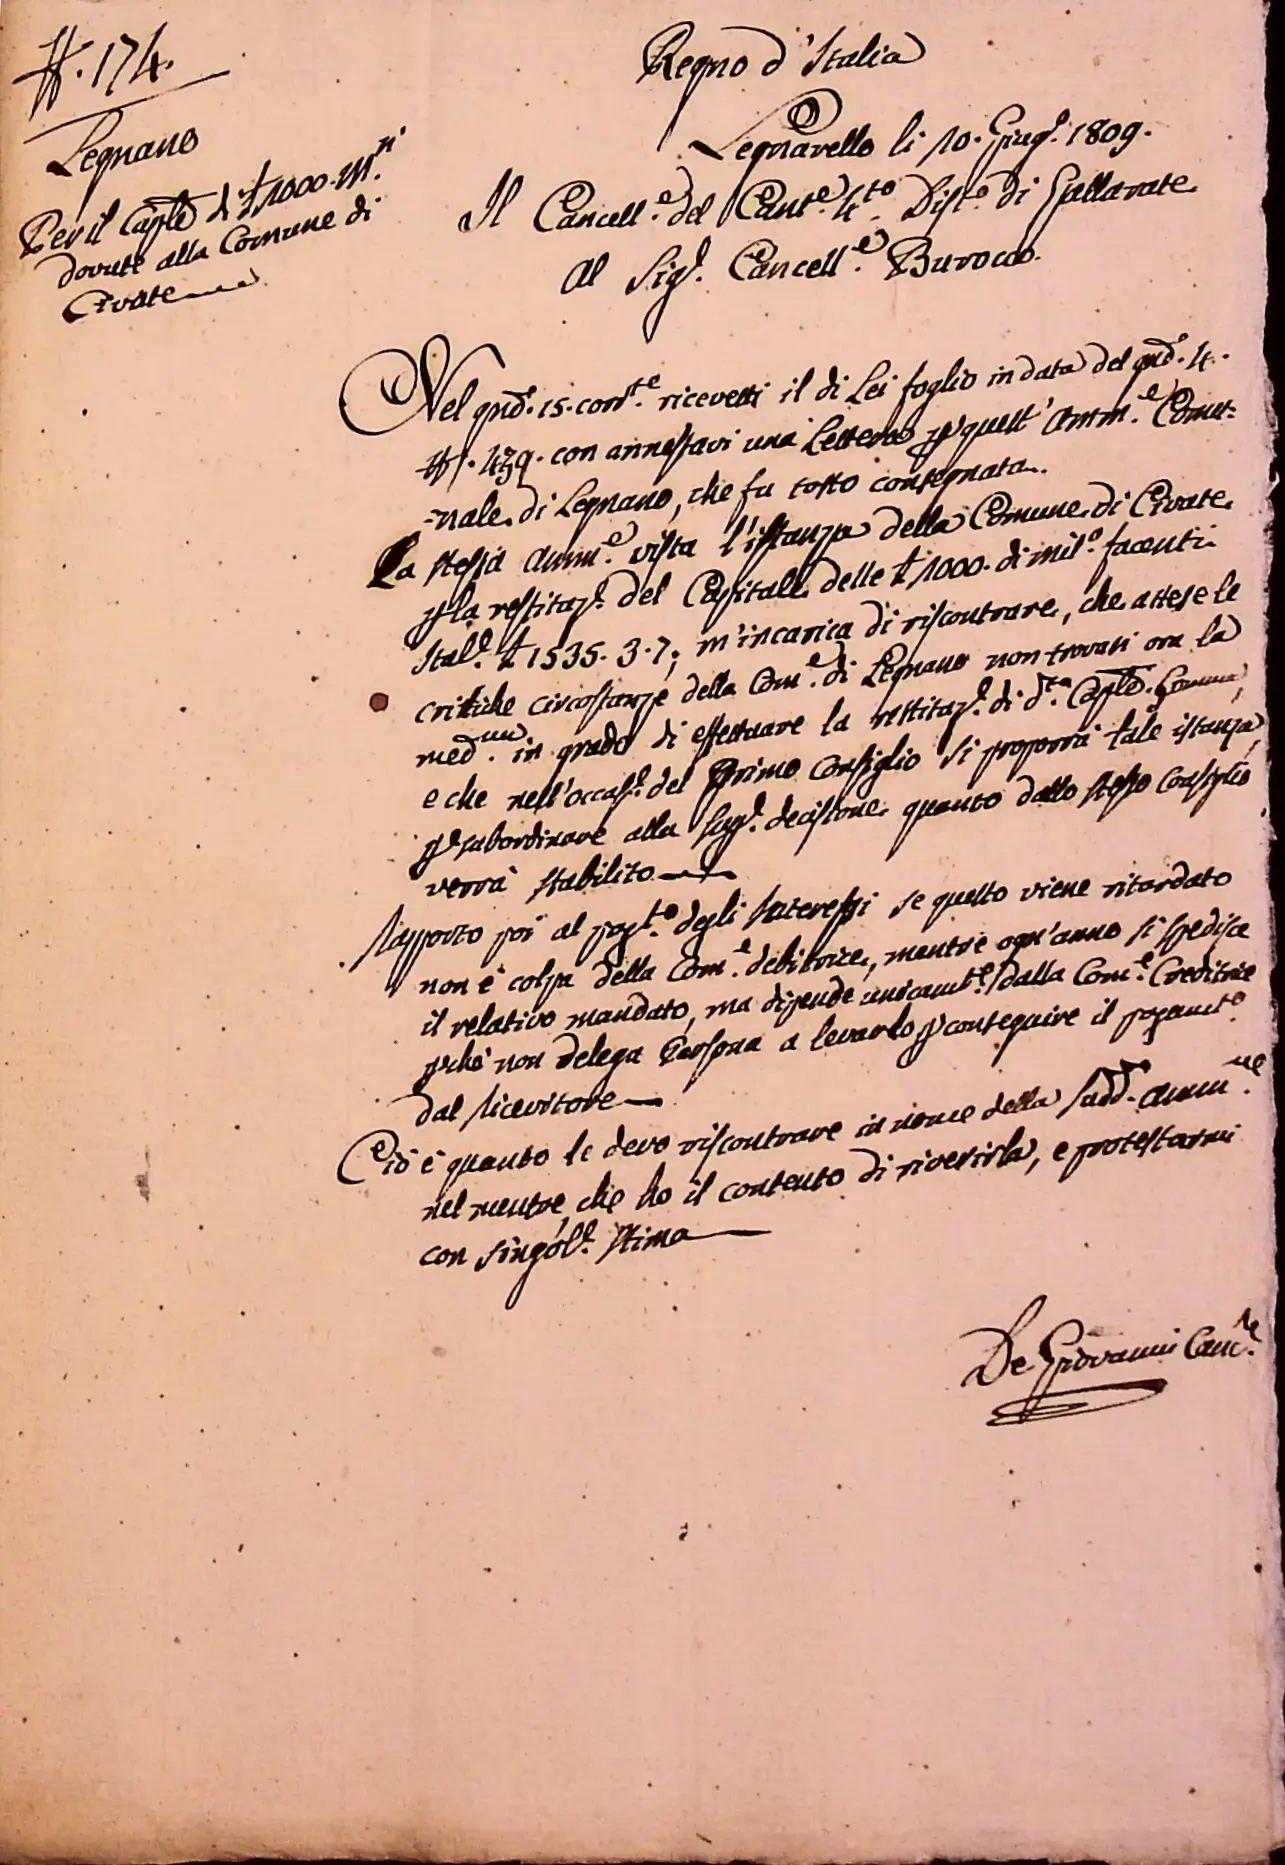 #. 174.
Legnano
Per il Caple di £ 1000. M.ni
dovute alla Comune di
Civate
Regno d'Italia
Legnarello li 10. Giug.o 1809.
Il Cancell.e del Cant.e 4.to Dist.o di Gallarate
Al Sig.r Cancell.e Burocco.
Nel gnd.o 15. corr.te ricevetti il di Lei foglio in data del gnd.o 4.
#. 439. con annessavi una Lettera p quest' Amm.e Comu=
=nale di Legnano, che fu tosto consegnata.
La stessa Amm.e vista l'istanza della Comune di Civate
p la restitaz.e del Capitale delle £ 1000. di mil.o facenti
Ital.e £ 1535. 3. 7; m'incarica di riscontrare, che attese le
critiche circostanze della Com.e di Legnano non trovasi ora la
med.ma in grado di effettuare la restitaz.e di d.to Caple.
e che nell'occas.e del Primo Consiglio si proporrà tale istanza,
p subordinare alla Sup.e decisione quanto dallo stesso Consiglio
verrà stabilito
Rapporto poi al pag.to degli Interessi se questo viene ritardato
non è colpa della Com.e debitrice, mentre ogn'anno si spedisce
il relativo mandato, ma dipende unicam.te dalla Com.e Creditrice
pchè non delega Persona a levarlo p conseguire il pagam.to
dal Ricevitore
Ciò è quanto le devo riscontrare in nome della sudd.a Amm.ne
nel mentre che ho il contento di riverirla, e protestarmi
con singol.e stima
De Giovanni Canc.re